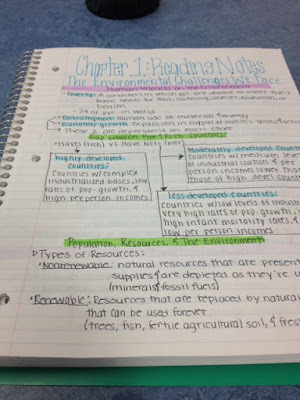 Chapter 1: Reading Notes
The Environmental Challenges We Face
Human Impacts on the Environment
Poverty: A condition in which ppl. are unable to meet their
basic needs for food, clothing, shelter, education, or
health.
of ppl. in world
Consumption: Human use of materials & energy
Economic growth: expansion in output of nation's goods & services
These 2 are dependent on each other
Gap Between The Rich Countries
Haves (rich) vs Have Nots (poor)
highly developed
countries:
Countries w/ complex
industrialized bases, low
rates of pop. growth, &
high per person incomes
Moderately developed countries:
countries w/ medium levels
of industrialization & per
person incomes lower than
those of high devel. countries
less developed countries:
countries w/ low levels of industri
very high rates of pop. growth,
high infant mortality rates, &
low per person incomes
Population, Resources, & The Environment
Types of Resources:
Nonrenewable: natural resources that are present
supplies & are depleted as they're u
(minerals & fossil fuels)
Renewable: Resources that are replaced by natural
that can be used forever.
(trees, fish, fertile agricultural soil, & fres